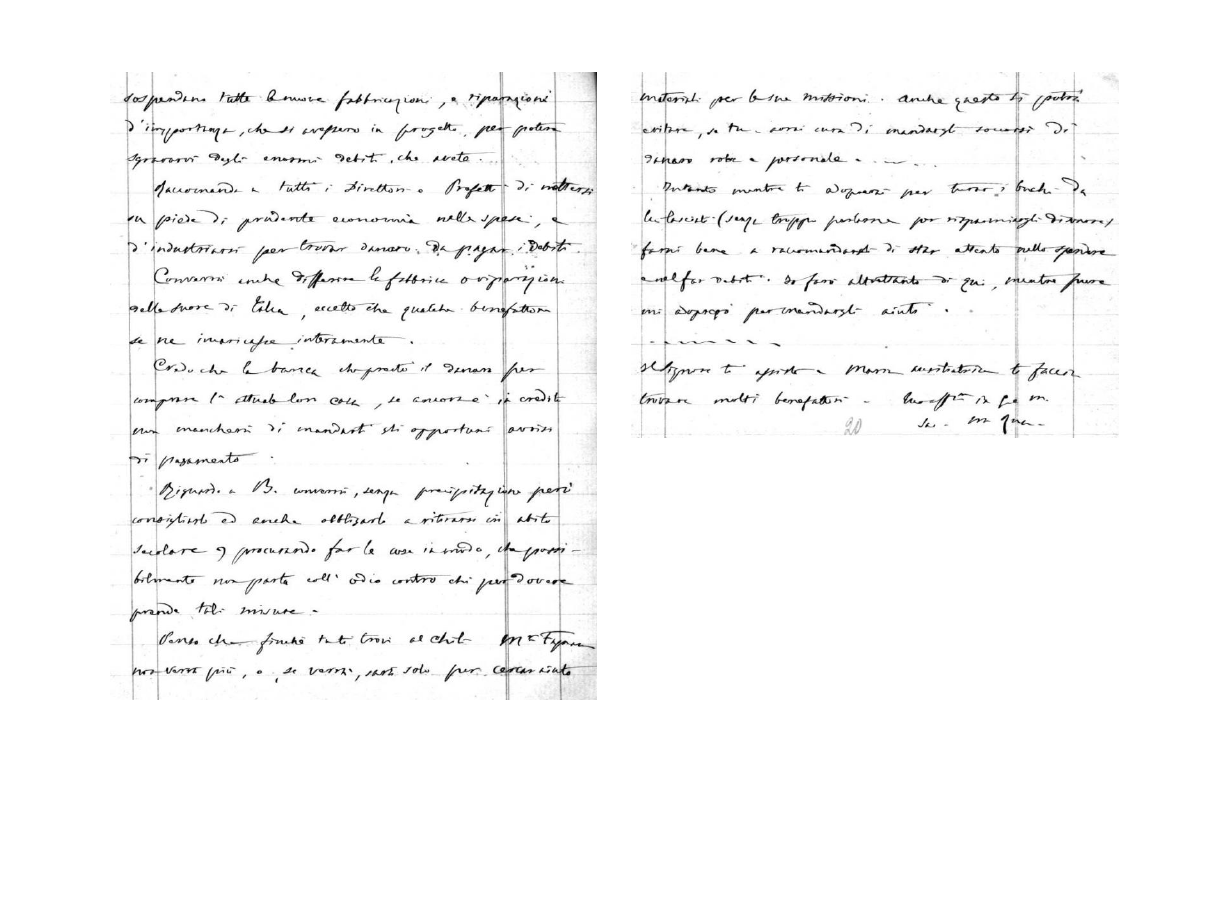 sospendano tutte le nuove fabbricazioni, e riparazioni
d'importanza, che si avessero in progetto, per potere
sgravarvi degli enormi debiti, che avete.
Raccomanda a tutti i Direttori e Prefetti di mettersi
su piede di prudente economia nelle spese, e
d'industriarsi per trovar danaro da pagar i debiti.
Converrà anche differire le fabbriche o riparazioni
delle suore di, eccetto che qualche benefattore
se ne incaricasse interamente.
Credo che la banca che prestò il danaro per
comprare l'attuale lor casa, se ancora è in credito
non mancherà di mandarti gli opportuni avvisi
di pagamento.
Riguardo a B. converrà, senza precipitazione però
consigliarlo ed anche obbligarlo a ritirarsi in abito
secolare procurando far le cose in modo, che possi-
bilmente non parta coll'odio contro chi per dovere
prende tali misure.
Penso che finché tu ti trovi al Chilì Mr Fagnano
non verrà più, o, se verrà, sarà solo per cercar aiuto
materiali per le sue missioni. Anche questo si potrà
evitare, se tu avrai cura di mandargli soccorsi di
danaro robe e personale.......
Intanto mentre ti adoperi per turar i buchi da
lui lasciati (senza troppo parlarne per risparmiargli disonore)
farai bene a raccomandargli di star attento nello spendere
e nel far debiti. Io farò altrettanto di qui, mentre pure
mi adoprerò per mandargli aiuti.
- - - - - - - -
Il Signore ti assista e Maria ausiliatrice ti faccia
trovare molti benefattori. Tuo aff.mo in G. e M.
Sac. M Rua
20